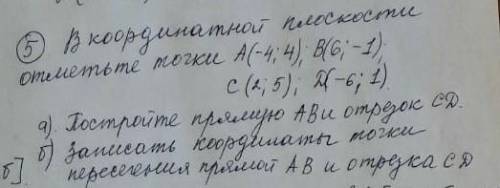 ⑤ В координатной плоскости
отметьте точки A(-4; 4); B(6; -1);
C (2; 5); D(-6; 1).
а). Постройте прямую AB и отрезок CD.
б) Записать координаты точки
б] пересечения прямой AB и отрезка CD